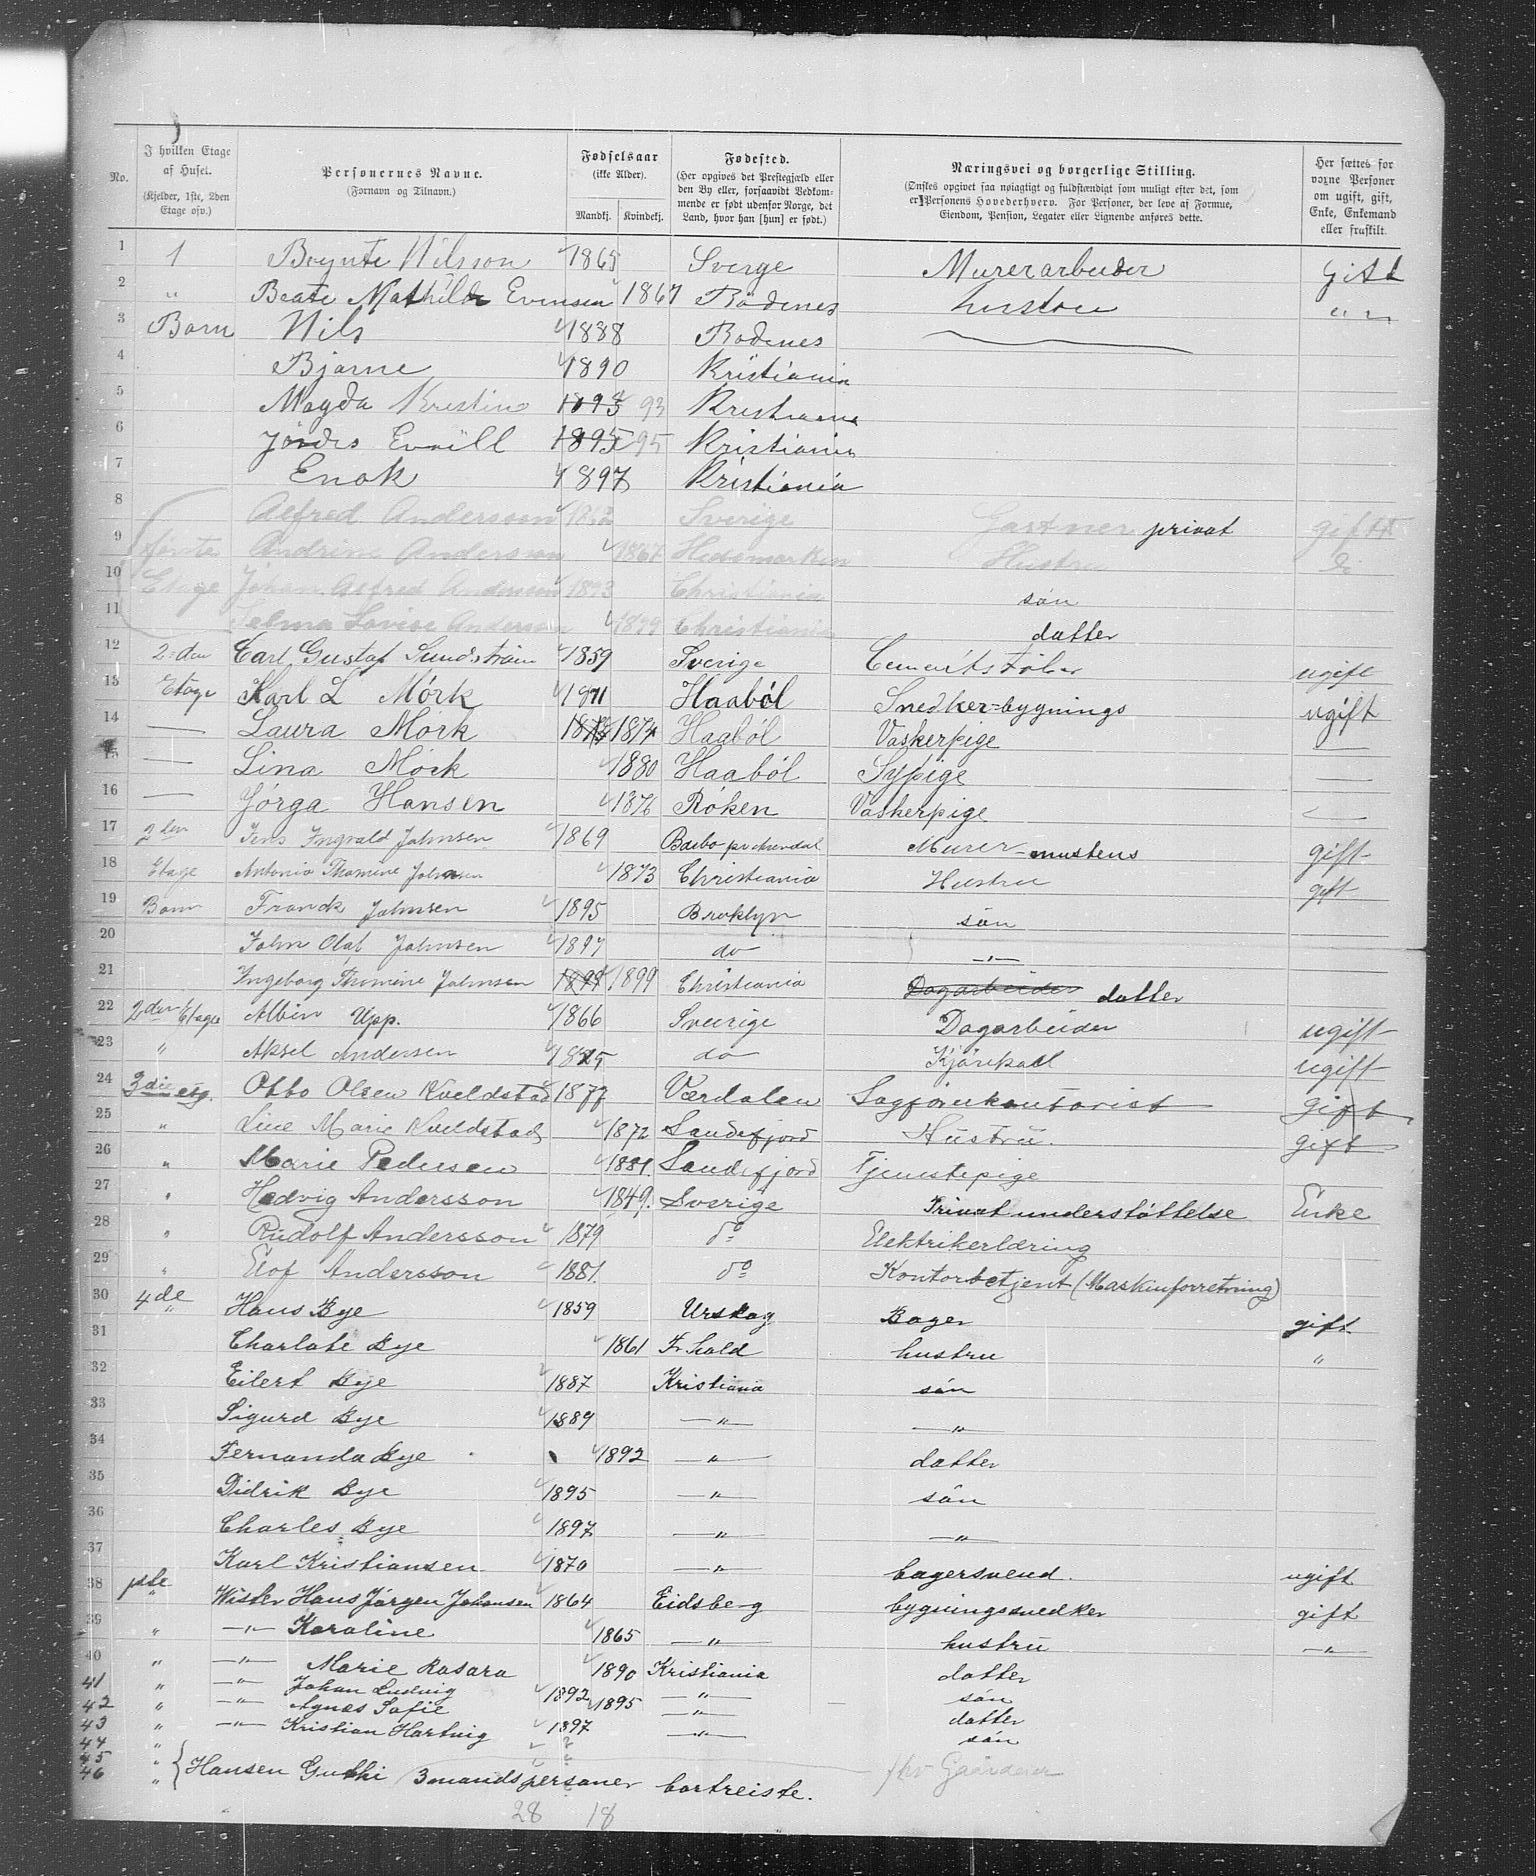 No. I hvilken Etage af Huset. (Kjelder, 1ste, 2den Etage osv.) Personernes Navne. (Fornavn og Tilnavn.) Fødselsaar (ikke Alder). Mandkj. Kvindekj. Fødested. (Her opgives det Prestegjæld eller den By eller, forsaavidt Vedkommende er født udenfor Norge, det Land, hvor han [hun] er født.) Næringsvei og borgerlige Stilling. (Ønskes opgivet saa nøiagtigt og fuldstændigt som muligt efter det, som er Personens Hovederhverv. For Personer, der leve af Formue, Eiendom, Pension, Legater eller Lignende anføres dette. Her sættes for voxne Personer om ugift, gift, Enke, Enkemand eller fraskilt.
1 1 Brynte Nilsson 1865 Sverge Murerarbeider Gift
2 " Beate Mathilde Evensen 1867 Rødenes hustru " "
3 Barn Nils 1888 Rødenes
4 Bjarne 1890 Kristiania
5 Magda Kristine 1893 93 Kristiania
6 Jordis 1895 95 Kristiania
7 Enok 1897 Kristiania
8 Alfred Andersson Sverige Gartner privat gift
9 første Andrine Andersson 1867 Hedemarken Hustru do
10 Etage Johan Alfred Andersson 1893 Christiania søn
11 Selma Lovise Andersson 1899 Christiania datter
12 2den Carl Gustaf Sundstrøm 1859 Sverige Cementstøber ugift
13 Etage Karl L Mórk 1871 Haaból Snedker=bygnings ugift
14 — Laura Mork 1874 Haaból Vaskerpige —
15 — Lina Mórk 1880 Haaból Sypige —
16 — Jórga Hansen 1876 Róken Vaskerpige —
17 2den Jens Ingvald Johnsen 1869 Murer gift
18 Etage Antonia Thomine Johnsen 1873 Christiania Hustru gift
19 Barn Franck Johnsen 1895 Broklyn søn
20 John Olaf Johnsen 1897 do —"—
21 Ingeborg Thomine Johnsen 1899 1899 Christiania Dagarbeider datter
22 2den Etage Albin Upp. 1866 Sverige Dagarbeider ugift
23 " Aksel Andersen 1875 do Kjørekarl ugift
24 3die etg. Otto Olsen Kveldstad 1877 Værdalen Sagførerkontorist gift
25 " Line Marie Kveldstad 1872 Sandefjord Hustru. gift
26 " Marie Pedersen 1881. Sandefjord Tjenestepige
27 " Hedvig Andersson 1849. Sverige Privat understøttelse Enke
28 " Rudolf Andersson 1879 do Elektrikerlæring
29 " Elof Andersson 1881. do Kontorbetjent (Maskinforretning)
30 4de " Hans Bye 1859 Urskog Bager gift
31 Charlote Bye 1861 Fr.hald hustru "
32 Eilert Bye 1887 Kristiania søn
33 Sigurd Bye 1889 —"— —"—
34 Fernanda Bye 1892 —"— datter
35 Didrik Bye 1895 —"— søn
36 Charles Bye 1897 —"— —"—
37 Karl Kristiansen 1870 —"— bagersvend. ugift
38 " Hans Jørgen Johansen 1864 Eidsberg bygningssnedker gift
39 " —"— Karoline 1865 —"— hustru —"—
40 " —"— Marie Rasara 1890 Kristiania datter
41 " —"— Johan Ludvig 1892 —"— søn
42 " —"— Agnes Sofie 1895 —"— datter
43 " —"— Kristian Hartvig 1897 —"— søn
44 " ?
45 " Hansen 3 mandspersoner bortreiste. Gaardeier
46 "
28 18